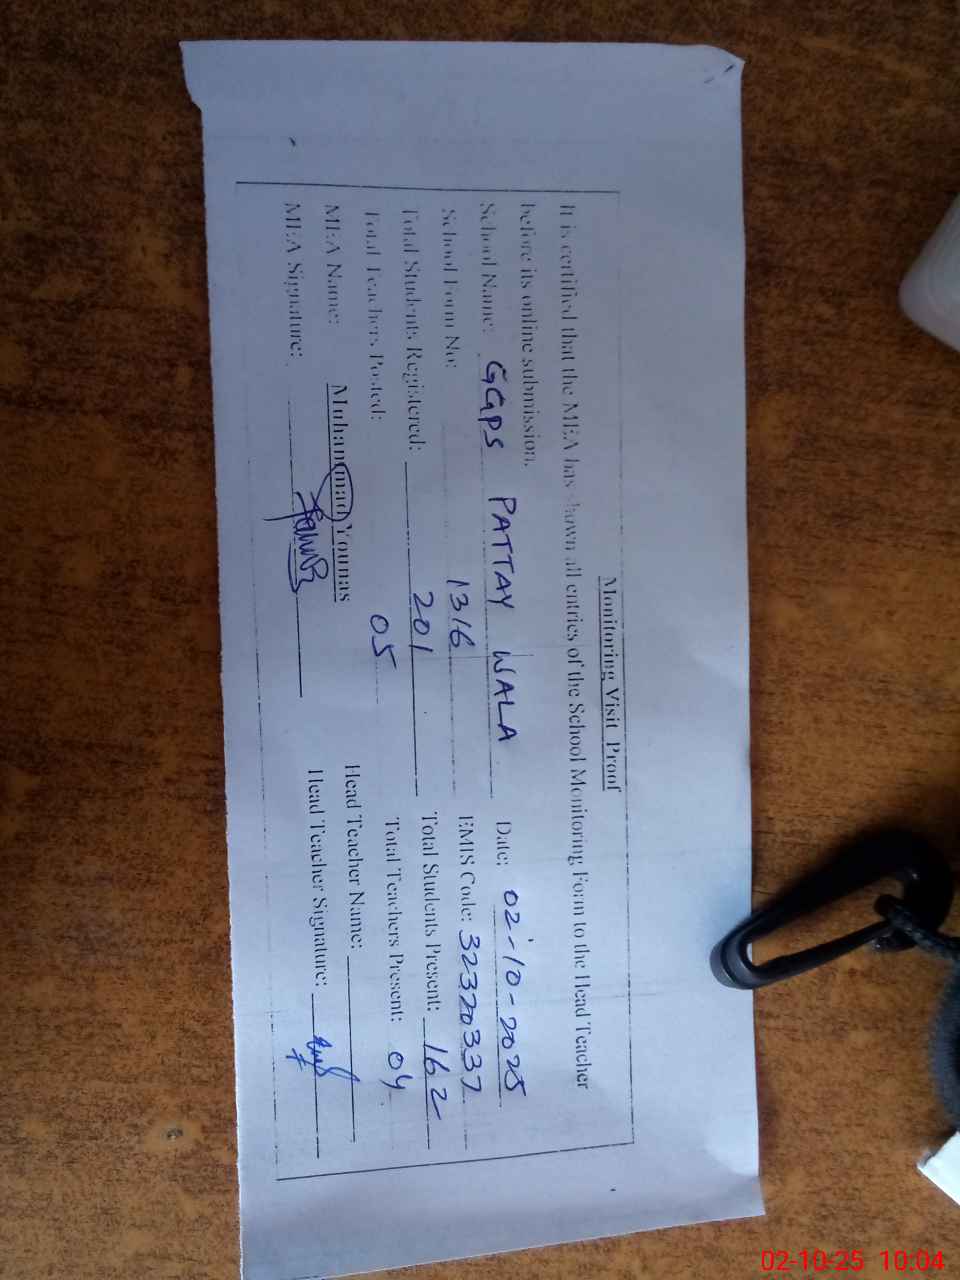 Monitoring Visit Proof
It is certified that the MEA has shown all entries of the School Monitoring Form to the Head Teacher
before its online submission.
School Name: GGPS PATTAY WALA Date: 02-10-2025
School Form No: 1316 EMIS Code: 32320337
Total Students Registered: 201 Total Students Present: 162
Total Teachers Posted: 05 Total Teachers Present: 04
MEA Name: Muhammad Younas Head Teacher Name:
MEA Signature: Head Teacher Signature:
02-10-25 10:04